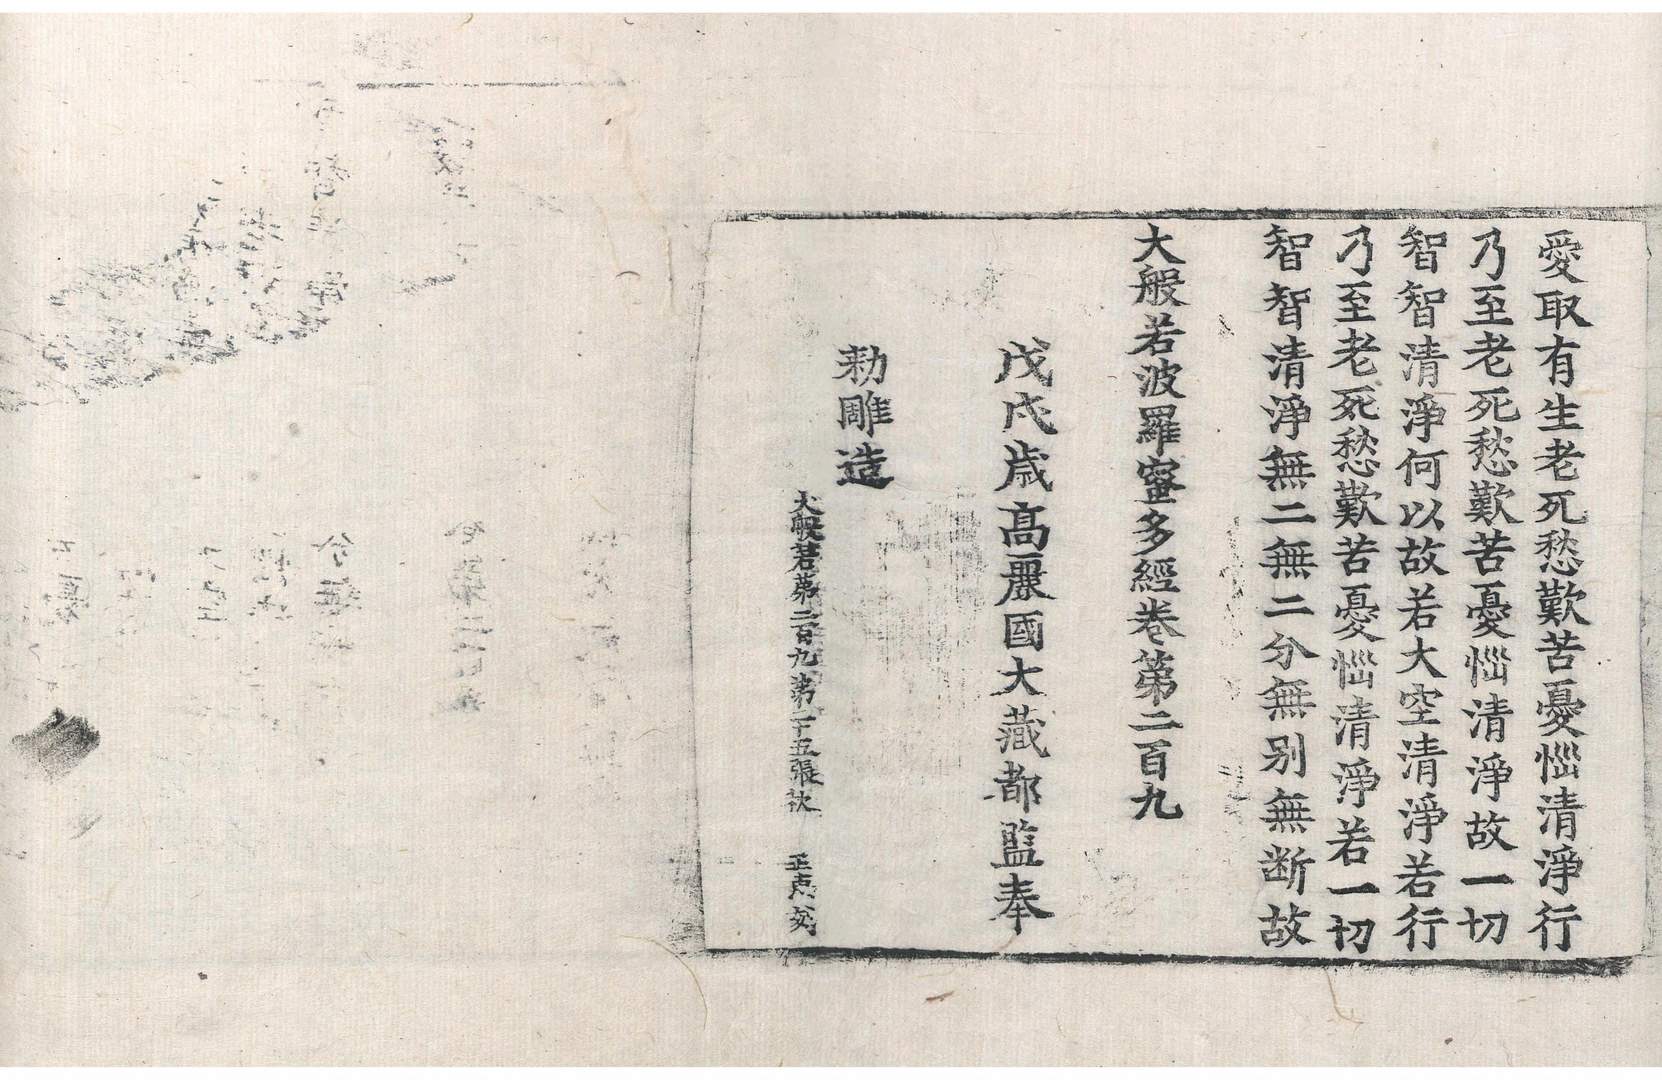 愛取有生老死愁歎苦憂惱清淨行
乃至老死愁歎苦憂惱清淨故一切
智智清淨何以故若大空清淨若行
乃至老死愁歎苦憂惱清淨若一切
智智清淨無二無二分無別無断故
大般若波羅蜜多經卷第二百九
戊戌歲高麗國大藏都監奉
勅雕造
大般若第二百九第二十五張 正 刻